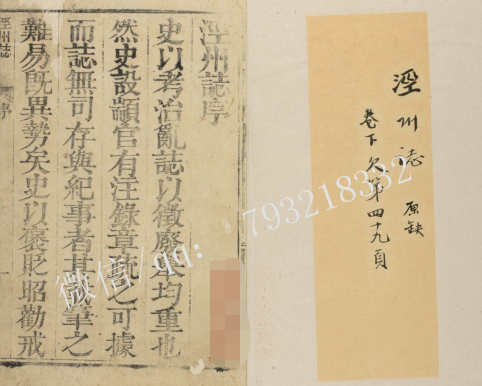 涇州誌 原缺
卷下欠第四十九頁
涇州誌序
史以考治亂誌以徵廢舉均重也
然史設顓官有注錄章疏之可據
而誌無司存與紀事者其載筆之
難易旣異勢矣史以褒貶昭勸戒
涇州誌 序
微信/qq: 793218332